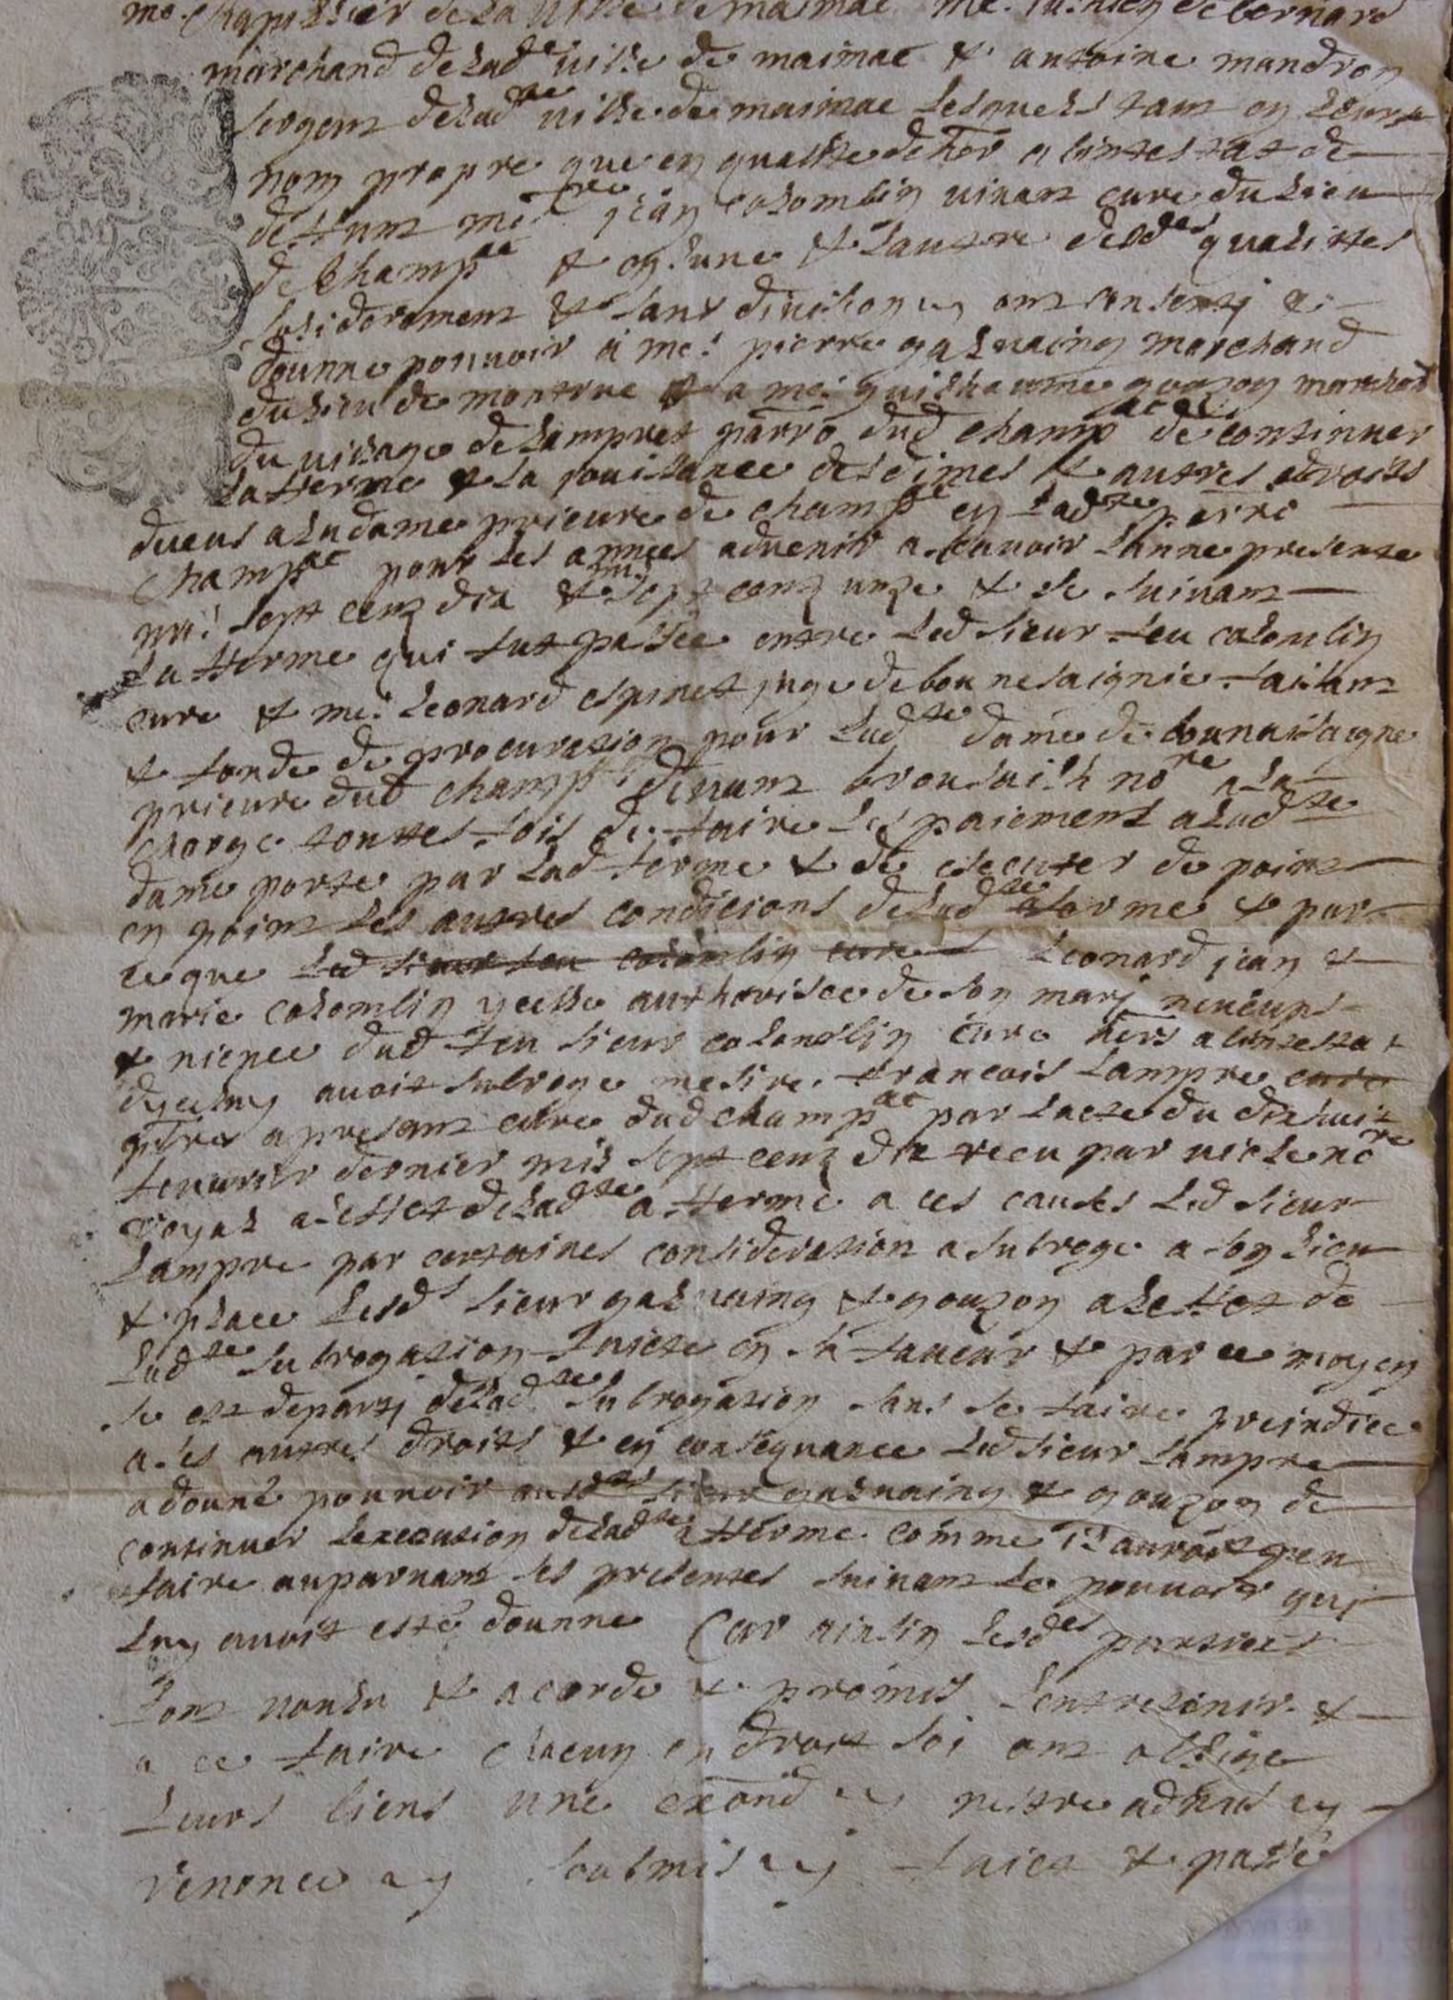 me. chapellier de la ville de maimac me. de bernard
marchand de lad.te ville de maimac & antoine mandron
sergent de lad.te ville de maimac lesquels tant en leurs
nom propre que en qualitte de her a bintestat de
deffunt me. jean colomblin vivant cure du lieu
de champ.ac & en lune & lautre desd.es qualittes
solideremens & sans division ont consenti &
donne pouvoir a me. pierre galvaing marchand
du lieu de monteve & a me. guilhaume gouzon marchad
du vilage de lampret parro dud champ.ac de continuer
la fferme & la jouissance des dimes & autres droits
deeus a la dame prieure de champ.ac en lad.te parro
champ.ac pour les annees advenir a scavoir lanne presente
mil sept cens dix & sept cens unze & se suivant
la fferme qui fut passee entre led sieur feu colomblin
cure & me. leonard espinet juge de bonnesaignie faisant
& fonde de procuration pour lad.te dame de bonnaisaigne
prieure dud champ.ac devant brousailh no.re a la
charge touttes fois de faire les paiement a lad.te
dame porte par lad ferme & de executer de point
en point les autres condicions de lad.te ferme & par
ce que led sieur feu colomblin cure leonard jean &
marie colomblin ycelle authorisee de son marj neveups
& niepce dud feu sieur colomblin cure hers a bintestat
dyceluy avoit subroge messire francois lampre cure
p.bre a presant cure dud champ.ac par lacte du dixhuit
fevurier dernier mil sept cens dix receu par viale no.re
royal a leffet de lad.te afferme a ces causes led sieur
lampre par certaines consideration a subroge a son lieu
& place lesd.s sieur galvaing & gouzon a leffet de
lad.te subrogation faicte en sa faveur & par ce moyen
se est departj de lad.te subrogation sans se faire preindice
a ses autres droits & en consequance led sieur lampre
a donne pouvoir ausd.s sieur galvaing & gouzon de
continuer lexecution de lad.te afferme comme il auroit peu
faire auparvant les presentes suivant le pouvoir quj
luy avoit este donne Car ainsin lesd.es parties
lont voulu & acorde & promis lentretenir &
a ce faire chacun en droit soi ont oblige
leurs biens une exond nestre adms
renonce soubmis faict & passe